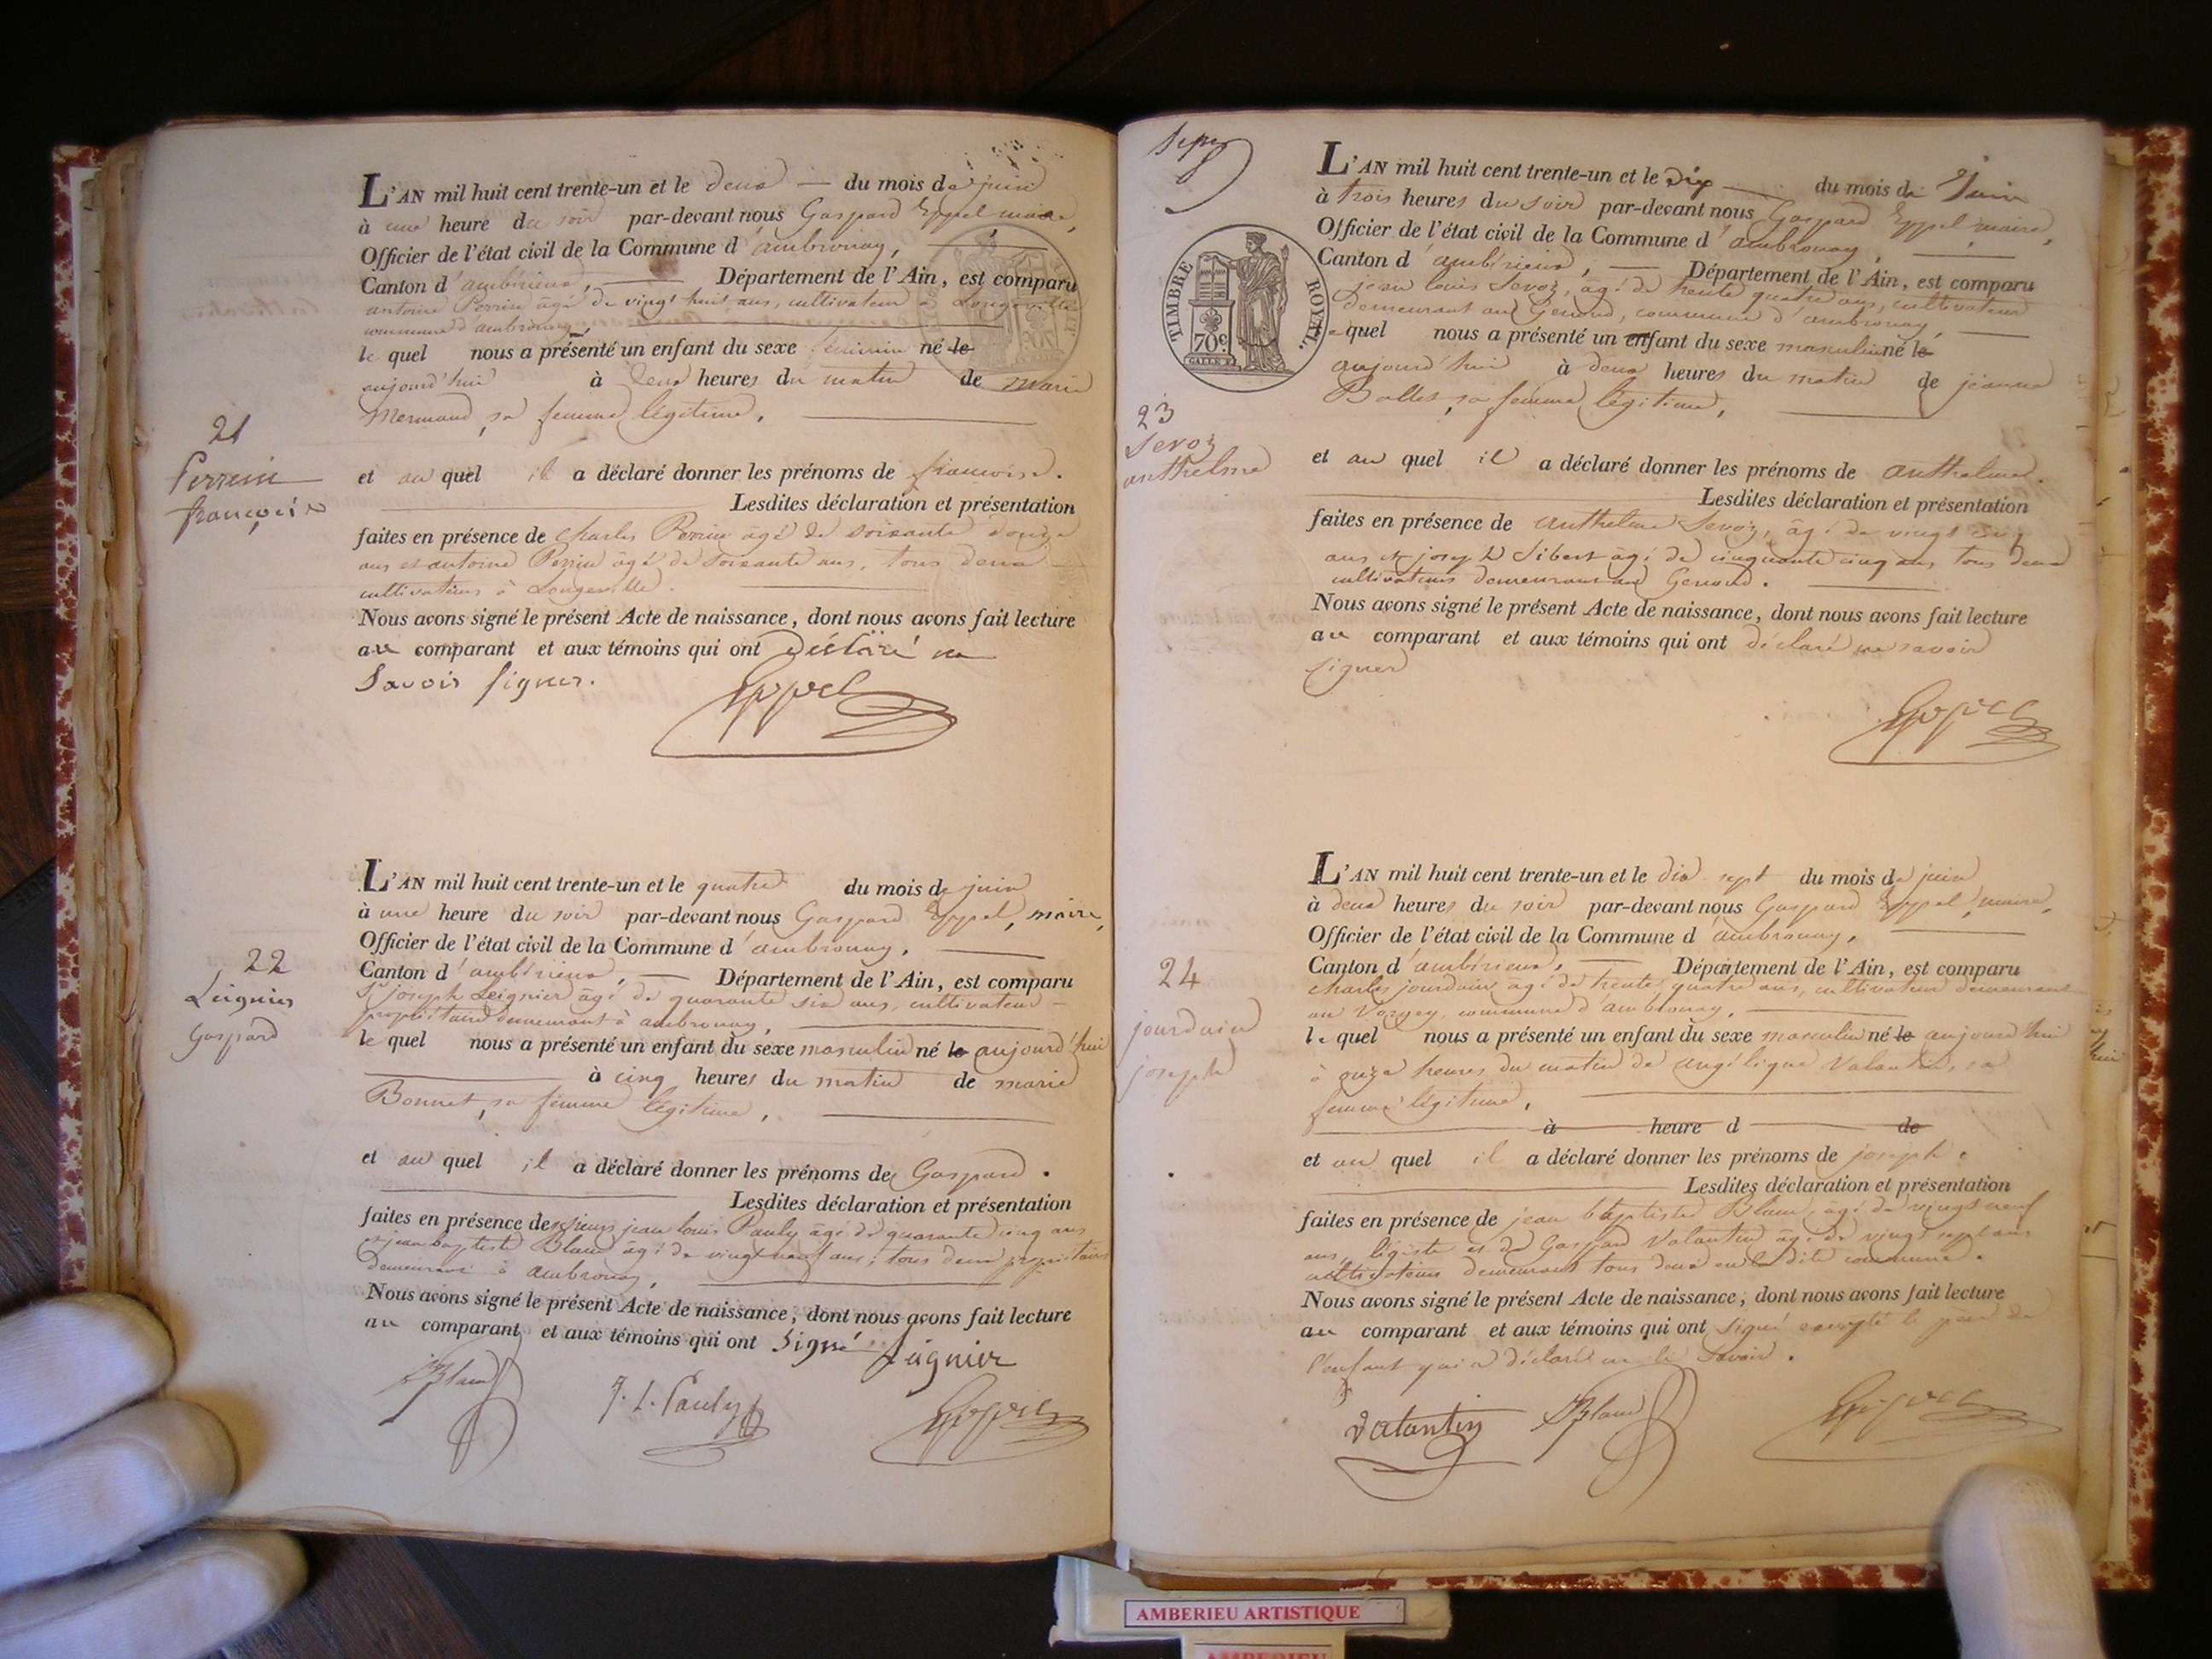 L'AN mil huit cent trente-un et le deux — du mois de juin
à une heure du soir par-devant nous Gaspard Eppel maire,
Officier de l'état civil de la Commune d'ambronay,
Canton d'ambérieux, — Département de l'Ain, est comparu
antoine Perrin âgé de vingt huit ans, cultivateur à Longeville
commune d'ambronay,
le quel nous a présenté un enfant du sexe féminin né le
aujourd'hui à deux heures du matin de marie
Mermand, sa femme légitime,
21
Perrin
françoise
et au quel il a déclaré donner les prénoms de françoise.
Lesdites déclaration et présentation
faites en présence de Charles Perrin âgé de soixante douze
ans et antoine Perrin âgé de soixante ans, tous deux
cultivateurs à Longeville.
Nous avons signé le présent Acte de naissance, dont nous avons fait lecture
au comparant et aux témoins qui ont déclaré ne
Savoir signer.
Eppel
L'AN mil huit cent trente-un et le quatre du mois de juin
à une heure du soir par-devant nous Gaspard Eppel, maire,
Officier de l'état civil de la Commune d'ambronay,
Canton d'ambérieux, — Département de l'Ain, est comparu
Sr joseph Leignier âgé de quarante six ans, cultivateur
propriétaire demeurant à ambronay,
22
Leignier
Gaspard
le quel nous a présenté un enfant du sexe masculin né le aujourd'hui
à cinq heures du matin de marie
Bonnet, sa femme légitime,
et au quel il a déclaré donner les prénoms de Gaspard.
Lesdites déclaration et présentation
faites en présence de sieurs jean louis Pauly âgé de quarante cinq ans
et jean baptiste Blanc âgé de vingt neuf ans; tous deux propriétaires
demeurant à ambronay,
Nous avons signé le présent Acte de naissance, dont nous avons fait lecture
au comparant et aux témoins qui ont signé Leignier
Blanc J. L. Pauly Eppel
L'AN mil huit cent trente-un et le Dix du mois de Juin
à trois heures du soir par-devant nous Gaspard Eppel maire,
Officier de l'état civil de la Commune d'ambronay,
Canton d'ambérieux, — Département de l'Ain, est comparu
jean louis Sevoz, âgé de trente quatre ans, cultivateur
demeurant au Genoud, commune d'ambronay,
TIMBRE ROYAL.
70c
le quel nous a présenté un enfant du sexe masculin né le
aujourd'hui à deux heures du matin de jeanne
Bollet, sa femme légitime,
23
Sevoz
anthelme
et au quel il a déclaré donner les prénoms de anthelme.
Lesdites déclaration et présentation
faites en présence de anthelme Sevoz, âgé de vingt six
ans et joseph Sibert âgé de cinquante cinq ans, tous deux
cultivateurs demeurant au Genoud.
Nous avons signé le présent Acte de naissance, dont nous avons fait lecture
au comparant et aux témoins qui ont déclaré ne savoir
signer
Eppel
L'AN mil huit cent trente-un et le dix sept du mois de juin
à deux heures du soir par-devant nous Gaspard Eppel, maire,
Officier de l'état civil de la Commune d ambronay,
Canton d'ambérieux, — Département de l'Ain, est comparu
Charles jourdain, âgé de trente quatre ans, cultivateur demeurant
au Vorgey, commune d'ambronay,
24
jourdain
joseph
le quel nous a présenté un enfant du sexe masculin né le aujourd'hui
à onze heures du matin de angélique Valantin, sa
femme légitime,
à heure d de
et au quel il a déclaré donner les prénoms de joseph.
Lesdites déclaration et présentation
faites en présence de jean baptiste Blanc, âgé de vingt neuf
ans, légiste et de Gaspard Valantin âgé de vingt sept ans
cultivateur demeurant tous deux en la dite commune.
Nous avons signé le présent Acte de naissance, dont nous avons fait lecture
au comparant et aux témoins qui ont signé excepté le père de
l'enfant qui a déclaré ne le savoir.
Valantin Blanc Eppel
AMBERIEU ARTISTIQUE
AMBERIEU